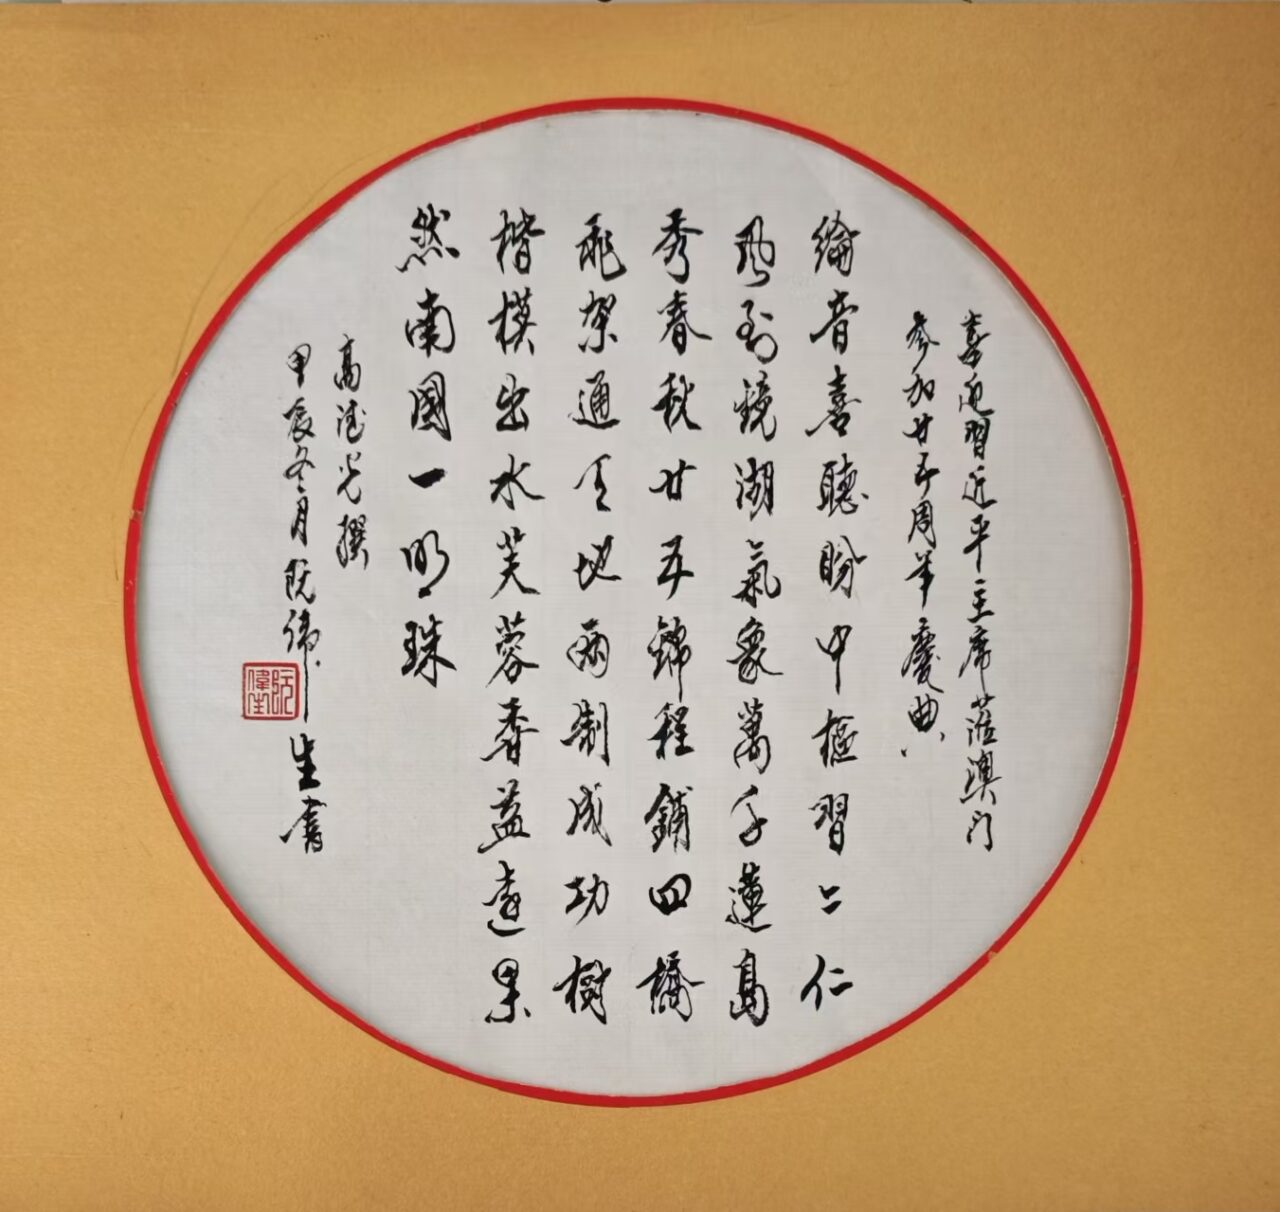 喜迎習近平主席蒞澳門
參加廿五周年慶典
綸音喜聽盼中樞習習仁
風到鏡湖氣象萬千蓮島
秀春秋廿五錦程鋪四橋
飛架通天地兩制成功樹
楷模出水芙蓉香益遠果
然南國一明珠
高澄光撰
甲辰冬月阮偉生書
阮偉生